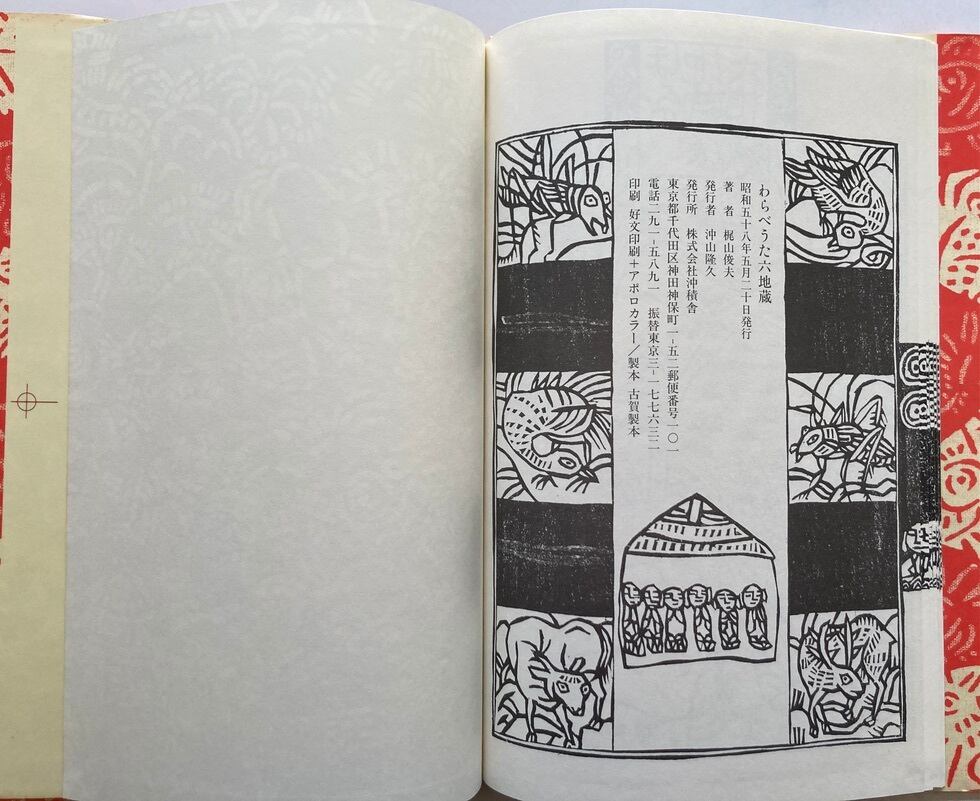 わらべうた六地蔵
昭和五十八年五月二十日発行
著　者　梶山俊夫
発行者　沖山隆久
発行所　株式会社沖積舎
東京都千代田区神田神保町一-五二郵便番号一〇一
電話二九一-五八九一　振替東京三-一七七六三二
印刷　好文印刷＋アポロカラー／製本　古賀製本